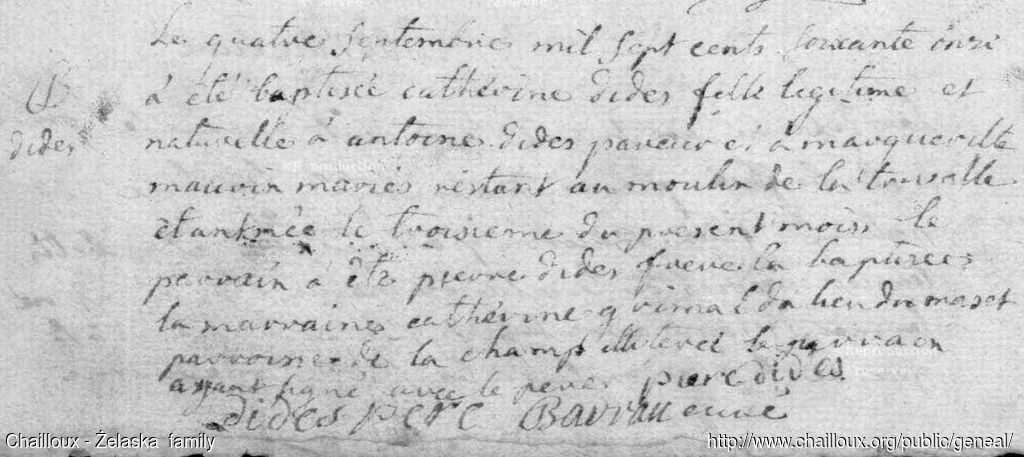 Le quatre septembre mil sept cents soixante onze
B
à été baptisée catherine dides fille legitime et
dides
naturelle à antoine dides paveur et à margueritte
maurin mariés restant au moulin de la
étant née le troisieme du present mois le
parrain à été pierre dides frere la baptisée
la marraine catherine grimal du lieu du maset
parroisse de la champ illiterée le parrain
ayant signé avec le pere pierre dides
dides pere Barrau curé
Reproduction
Chailloux - Żelaska family
http://www.chailloux.org/public/geneal/